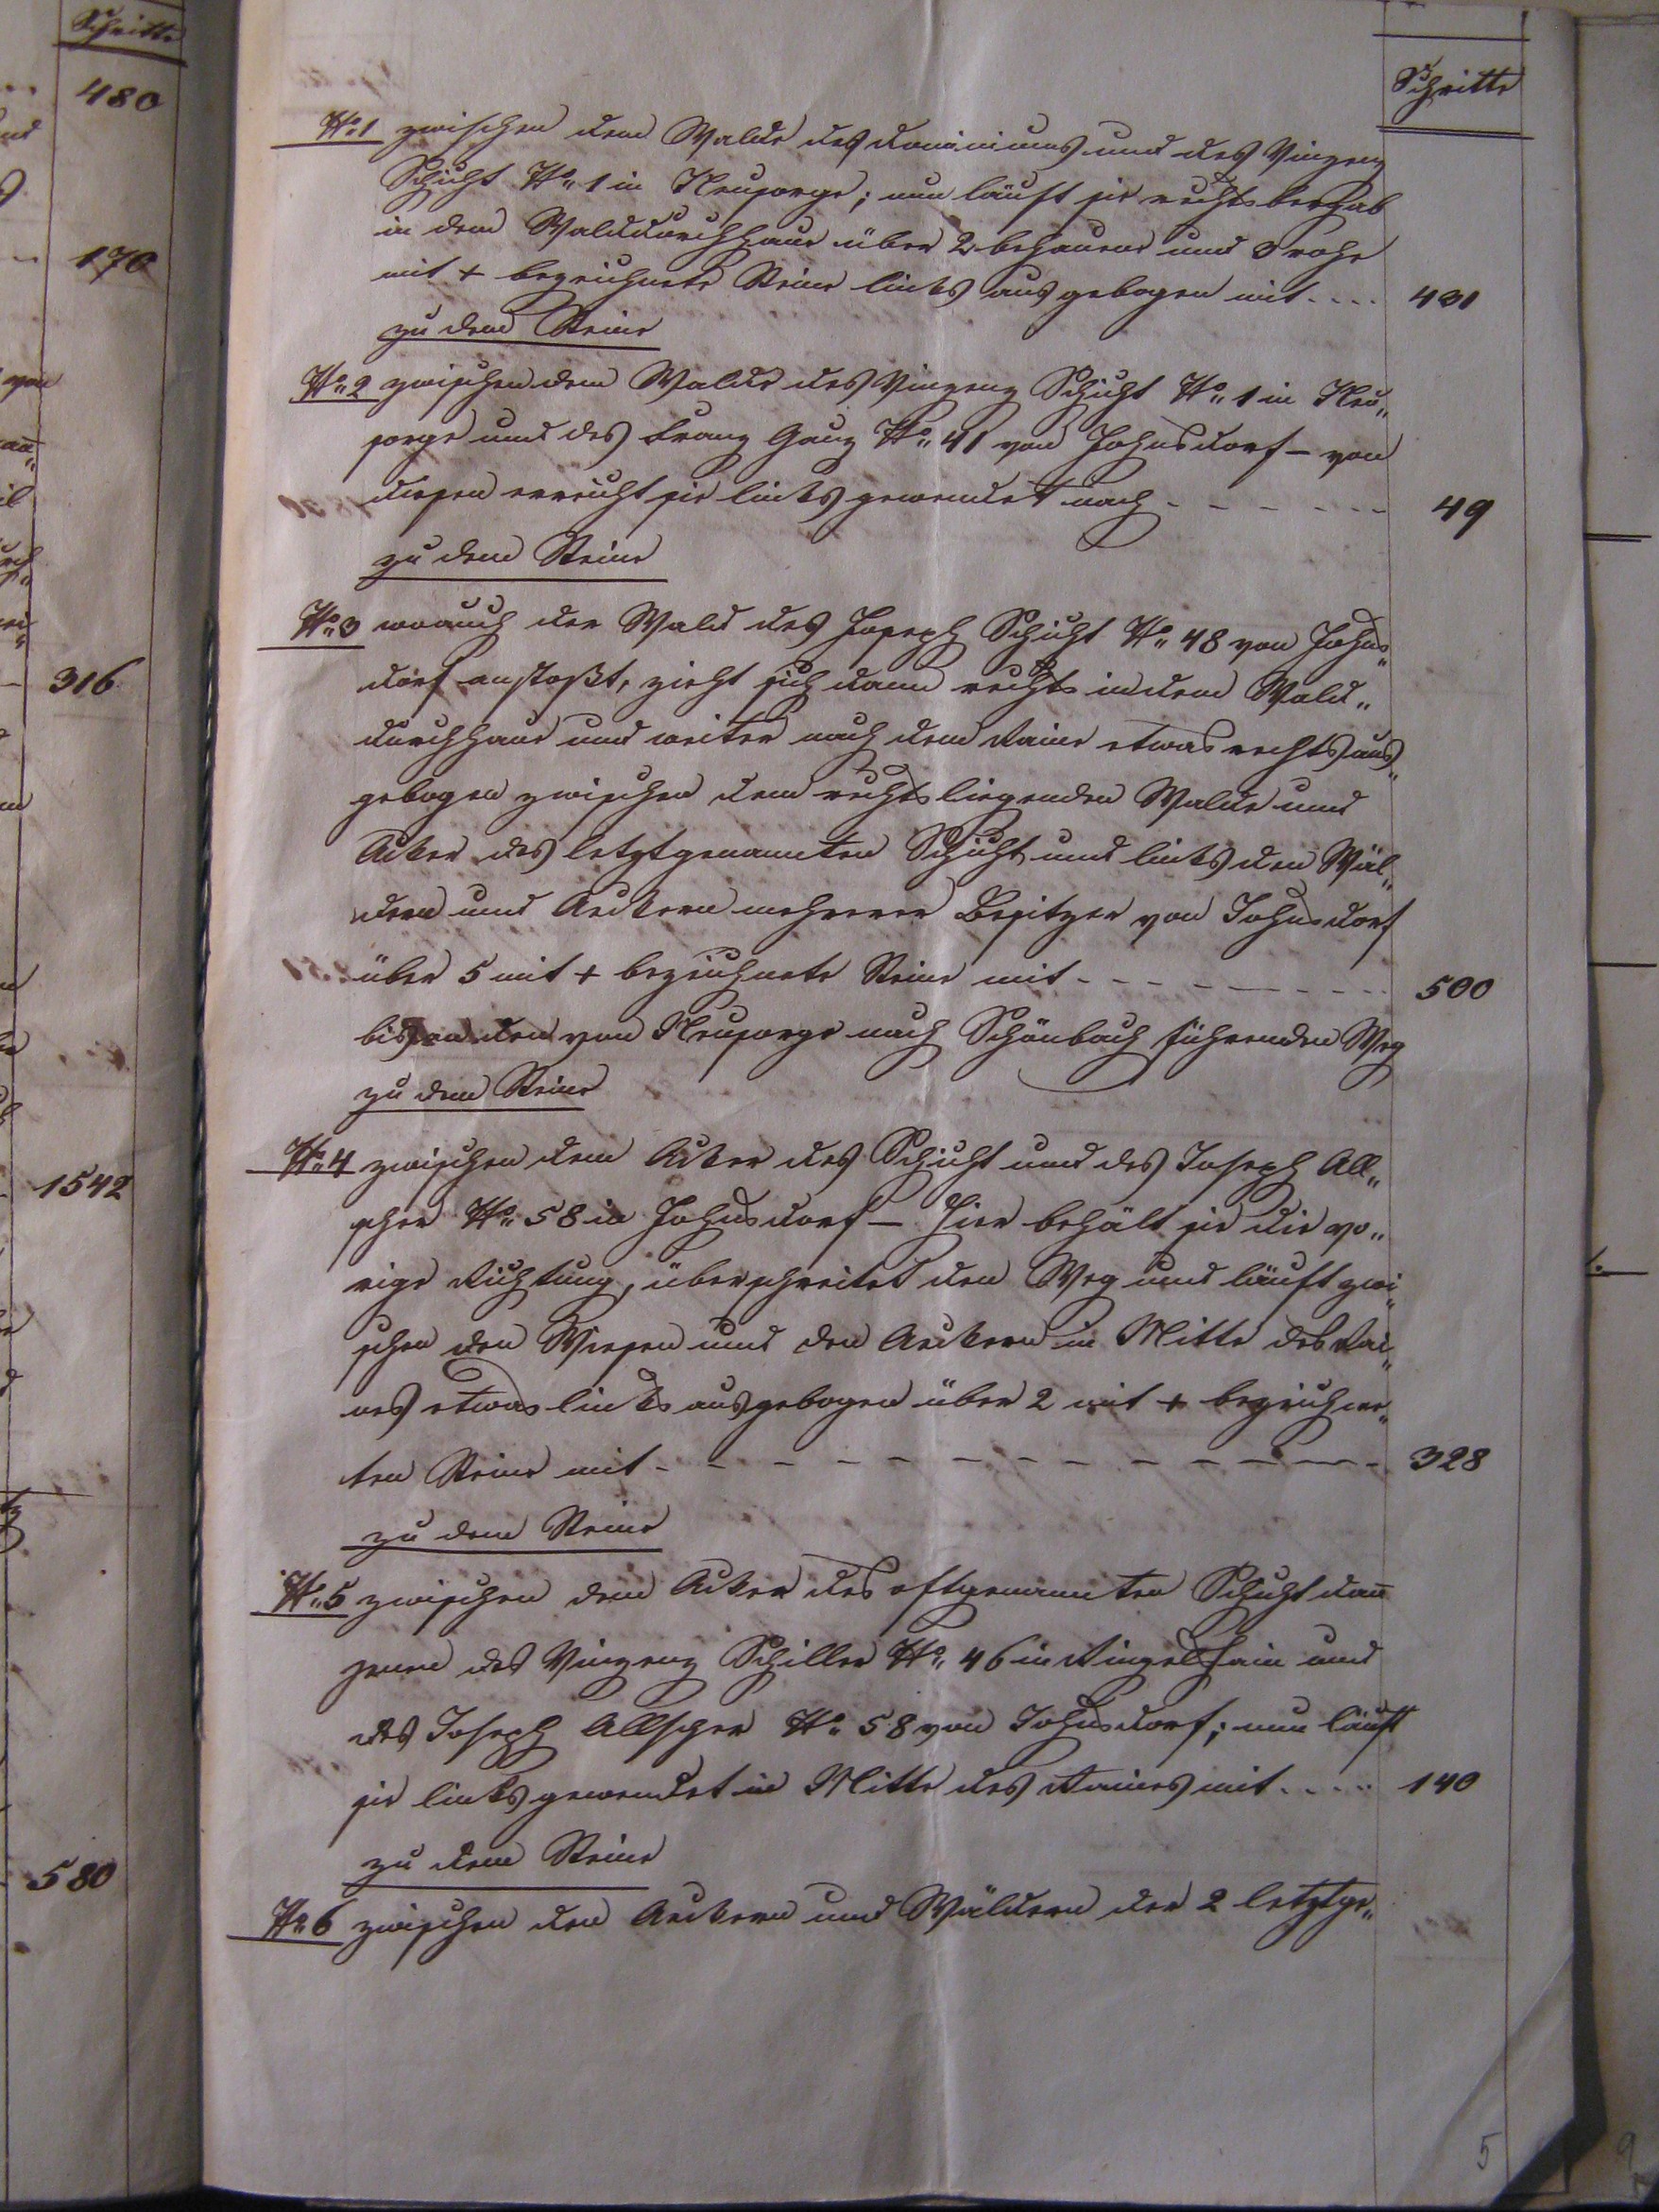 Schritte
480
170
316
1542
580
Schritte
No 1 zwischen dem Walde des Dominiums und des Vinzenz
Schicht No 1 in Neusorge; nun läuft sie rechts bergab
in dem Walddurchhaue über 2 behauene und 3 rohe
mit + bezeichnete Steine links ausgebogen mit . . . . 431
zu dem Steine
No 2 zwischen dem Walde des Vinzenz Schicht No 1 in Neu„
sorge und des Franz Ganz No 41 von Johnsdorf – von
diesem erreicht sie links gewendet nach - - - - - - - 49
zu dem Steine
No 3 wo auch der Wald des Joseph Schicht No 48 von Johns„
dorf anstoßt, zieht sich dann rechts in dem Wald„
durchhaue und weiter nach dem Raine etwas rechts aus„
gebogen zwischen dem rechts liegenden Walde und
Acker des letztgenannten Schicht und links den Wäl„
dern und Aeckern mehrerer Besitzer von Johnsdorf
über 5 mit + bezeichnete Steine mit - - - - - - - - - 500
bis an den von Neusorge nach Schönbach führenden Weg
zu dem Steine
No 4 zwischen dem Acker des Schicht und des Joseph All„
scher No 58 in Johnsdorf – hier behält sie die vo„
rige Richtung, überschreitet den Weg und läuft zwi„
schen den Wiesen und den Aeckern in Mitte des Rai„
nes etwas links ausgebogen über 2 mit + bezeichne„
ten Steine mit - - - - - - - - - - - - 328
zu dem Steine
No 5 zwischen dem Acker des oftgenannten Schicht dañ
jenem des Vinzenz Schiller No 46 in Ringelshain und
des Joseph Allscher No 58 von Johnsdorf; nun läuft
sie links gewendet in Mitte des Raines mit . . . . . 140
zu dem Steine
No 6 zwischen den Aeckern und Wäldern der 2 letztge„
5
9